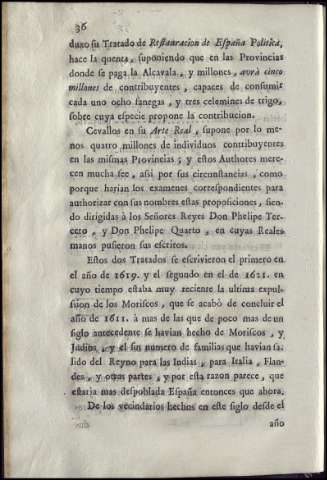 36
duxo su Tratado de Restauracion de España Politica,
hace la quenta, suponiendo que en las Provincias
donde se paga la Alcavala, y millones, avrà cinco
millones de contribuyentes, capaces de consumir
cada uno ocho fanegas, y tres celemines de trigo,
sobre cuya especie propone la contribucion.
Cevallos en su Arte Real, supone por lo me-
nos quatro millones de individuos contribuyentes
en las mismas Provincias; y estos Authores mere-
cen mucha fee, assi por sus circunstancias, como
porque harian los examenes correspondientes para
authorizar con sus nombres estas proposiciones, sien-
do dirigidas à los Señores Reyes Don Phelipe Ter-
cero, y Don Phelipe Quarto, en cuyas Reales
manos pusieron sus escritos.
Estos dos Tratados se escrivieron el primero en
el año de 1619. y el segundo en el de 1621. en
cuyo tiempo estaba muy reciente la ultima expul-
sion de los Moriscos, que se acabò de concluir el
año de 1611. à mas de las que de poco mas de un
siglo antecedente se havian hecho de Moriscos, y
Judios, y el sin numero de familias que havian sa-
lido del Reyno para las Indias, para Italia, Flan-
des, y otras partes, y por esta razon parece, que
estaria mas despoblada España entonces que ahora.
De los vecindarios hechos en este siglo desde el
año